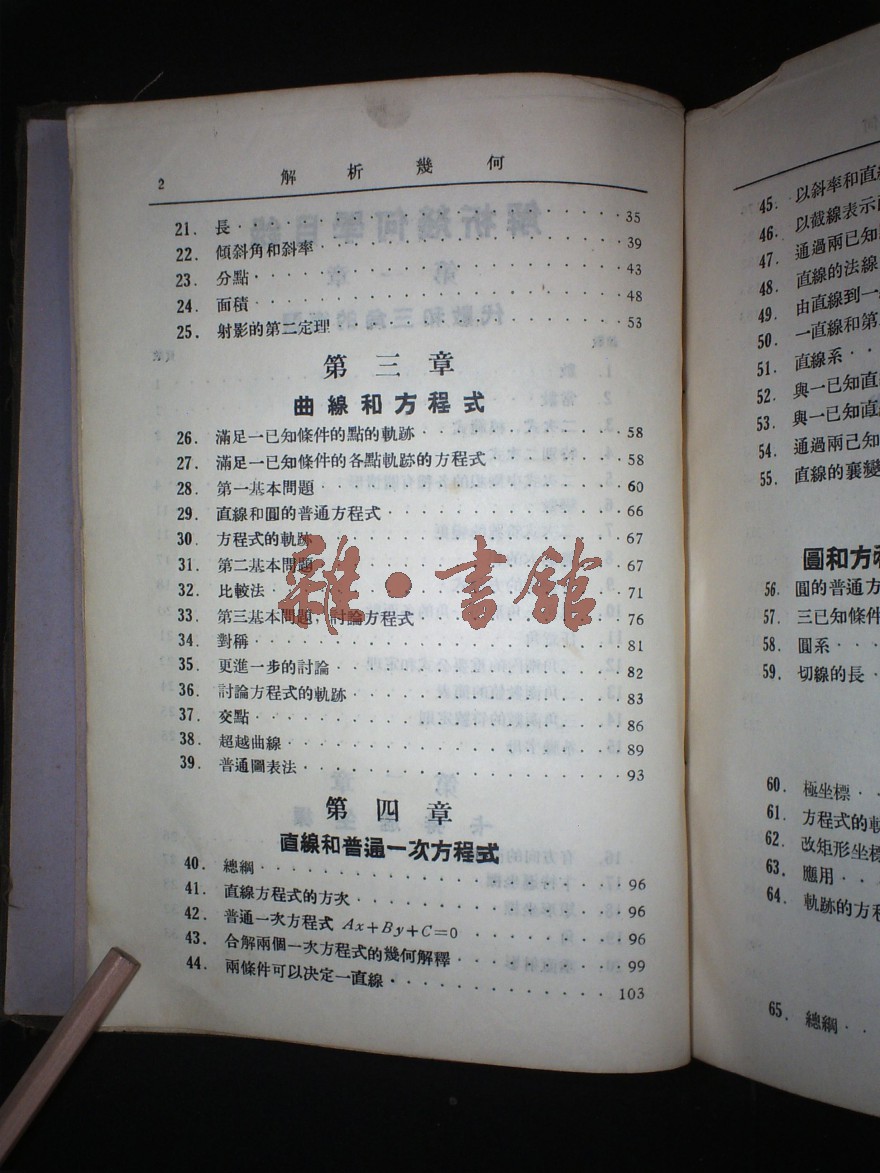 2 解析幾何
21. 長 35
22. 傾斜角和斜率 39
23. 分點 43
24. 面積 48
25. 射影的第二定理 53
第三章
曲線和方程式
26. 滿足一已知條件的點的軌跡 58
27. 滿足一已知條件的各點軌跡的方程式 58
28. 第一基本問題 60
29. 直線和圓的普通方程式 66
30. 方程式的軌跡 67
31. 第二基本問題 67
32. 比較法 71
33. 第三基本問題，討論方程式 76
34. 對稱 81
35. 更進一步的討論 82
36. 討論方程式的軌跡 83
37. 交點 86
38. 超越曲線 89
39. 普通圖表法 93
雜·書館
第四章
直線和普通一次方程式
40. 總綱 96
41. 直線方程式的方次 96
42. 普通一次方程式 Ax+By+C=0 96
43. 合解兩個一次方程式的幾何解釋 99
44. 兩條件可以決定一直線 103
45. 以斜率和直
46. 以截線表示
47. 通過兩已知
48. 直線的法線
49. 由直線到一
50. 一直線和第
51. 直線系
52. 與一已知直
53. 與一已知直
54. 通過兩已知
55. 直線的襄變
圓和方程
56. 圓的普通方
57. 三已知條件
58. 圓系
59. 切線的長
60. 極坐標
61. 方程式的軌
62. 改矩形坐標
63. 應用
64. 軌跡的方程
65. 總綱